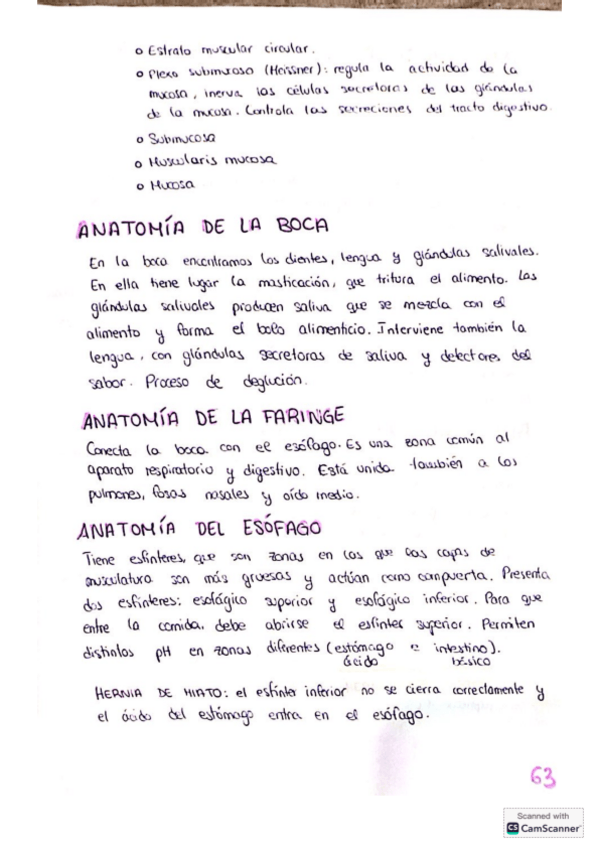 o Estrato muscular circular.
o Plexo submucosa (Meissner): regula la actividad de la
mucosa, inerva las células secretoras de las glándulas
de la mucosa. Controla las secreciones del tracto digestivo.
o Submucosa
o Muscularis mucosa
o Mucosa
ANATOMÍA DE LA BOCA
En la boca encontramos los dientes, lengua y glándulas salivales.
En ella tiene lugar la masticación, que tritura el alimento. Las
glándulas salivales producen saliva que se mezcla con el
alimento y forma el bolo alimenticio. Interviene también la
lengua, con glándulas secretoras de saliva y detectores del
sabor. Proceso de deglución.
ANATOMÍA DE LA FARINGE
Conecta la boca con el esófago. Es una zona común al
aparato respiratorio y digestivo. Está unida también a los
pulmones, fosas nasales y oído medio.
ANATOMÍA DEL ESÓFAGO
Tiene esfínteres, que son zonas en las que las capas de
musculatura son más gruesas y actúan como compuerta. Presenta
dos esfínteres: esofágico superior y esofágico inferior. Para que
entre la comida, debe abrirse el esfínter superior. Permiten
distintos pH en zonas diferentes (estómago e intestino).
ácido básico
HERNIA DE HIATO: el esfínter inferior no se cierra correctamente y
el ácido del estómago entra en el esófago.
63
Scanned with
CS CamScanner